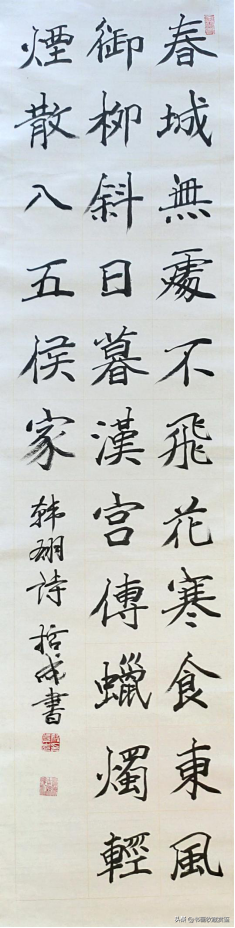 春城無處不飛花寒食東風
御柳斜日暮漢宮傳蠟燭輕
煙散入五侯家
韩翃诗 成書
头条